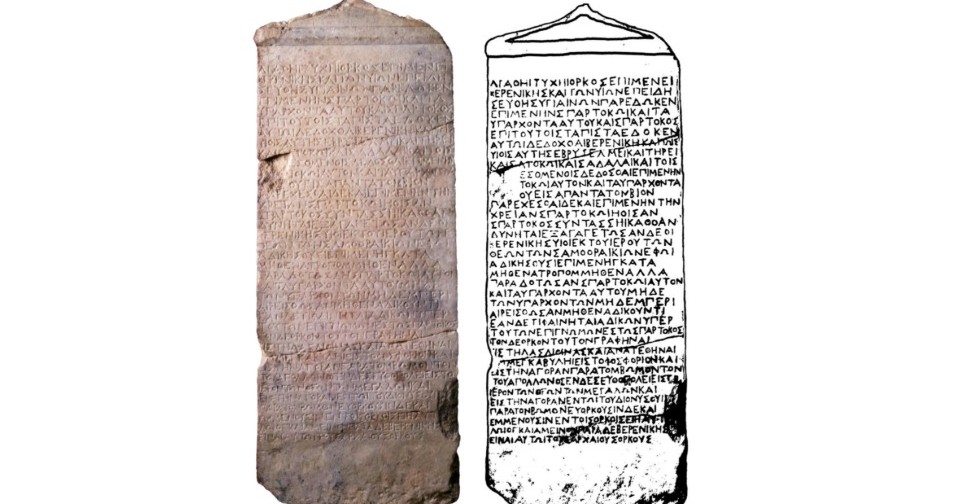 ΑΓΑΘΗΙΤΥΧΗΙΟΡΚΟΣΕΠΙΜΕΝΕΙ
ΒΕΡΕΝΙΚΗΣΚΑΙΤΩΝΥΙΩΝΕΠΕΙΔΗ
ΣΕΥΘΗΣΥΓΙΑΙΝΩΝΠΑΡΕΔΩΚΕΝ
ΕΠΙΜΕΝΗΝΣΠΑΡΤΟΚΩΙΚΑΙΤΑ
ΥΠΑΡΧΟΝΤΑΑΥΤΟΥΚΑΙΣΠΑΡΤΟΚΟΣ
ΕΠΙΤΟΥΤΟΙΣΤΑΠΙΣΤΑΕΔΩΚΕΝ
ΑΥΤΩΙΔΕΔΟΧΘΑΙΒΕΡΕΝΙΚΗΙΚΑΙΤΟΙΣ
ΥΙΟΙΣΑΥΤΗΣΕΒΡΥΤΕΛΜΕΙΚΑΙΤΗΡΕΙ
ΚΑΙΣΑΤΟΚΩΙΚΑΙΣΑΔΑΛΑΙΚΑΙΤΟΙΣ
ΕΣΟΜΕΝΟΙΣΔΕΔΟΣΘΑΙΕΠΙΜΕΝΗΝ
ΤΟΚΩΙΑΥΤΟΝΚΑΙΤΑΥΠΑΡΧΟΝΤΑ
ΟΥΕΙΣΑΠΑΝΤΑΤΟΝΒΙΟΝ
ΠΑΡΕΧΕΣΘΑΙΔΕΚΑΙΕΠΙΜΕΝΗΝΤΗΝ
ΧΡΕΙΑΝΣΠΑΡΤΟΚΩΙΗΟΣΑΝ
ΣΠΑΡΤΟΚΟΣΣΥΝΤΑΣΣΗΙΚΑΘΟΑΝ
ΔΥΝΗΤΑΙΕΞΑΓΑΓΕΤΩΣΑΝΔΕΟΙ
ΒΕΡΕΝΙΚΗΣΥΙΟΙΕΚΤΟΥΙΕΡΟΥΤΩΝ
ΘΕΩΝΤΩΝΣΑΜΟΘΡΑΙΚΙΩΝΕΦΩΙ
ΑΔΙΚΗΣΟΥΣΙΕΠΙΜΕΝΗΓΚΑΤΑ
ΜΗΘΕΝΑΤΡΟΠΟΜΜΗΘΕΝΑΛΛΑ
ΠΑΡΑΔΟΤΩΣΑΝΣΠΑΡΤΟΚΩΙΑΥΤΟΝ
ΚΑΙΤΑΥΠΑΡΧΟΝΤΑΑΥΤΟΥΜΗΔΕ
ΤΩΝΥΠΑΡΧΟΝΤΩΝΜΗΔΕΜΠΕΡΙ
ΑΙΡΕΙΣΘΩΣΑΝΜΗΘΕΝΑΔΙΚΟΥΝΤΙ
ΕΑΝΔΕΤΙΦΑΙΝΗΤΑΙΑΔΙΚΩΝΥΠΕΡ
ΤΟΥΤΩΝΕΠΙΓΝΩΜΩΝΕΣΤΩΣΠΑΡΤΟΚΟΣ
ΤΟΝΔΕΟΡΚΟΝΤΟΥΤΟΝΓΡΑΦΗΝΑΙ
ΙΣΤΗΛΑΣΛΙΘΙΝΑΣΚΑΙΑΝΑΤΕΘΗΝΑΙ
ΜΕΓΚΑΒΥΛΗΙΕΙΣΤΟΦΩΣΦΟΡΙΟΝΚΑΙ
ΕΙΣΤΗΝΑΓΟΡΑΝΠΑΡΑΤΟΜΒΩΜΟΝΤΟΝ
ΤΟΥΑΠΟΛΛΩΝΟΣΕΝΔΕΣΕΥΘΟΠΟΛΕΙΕΙΣΤΟ
ΙΕΡΟΝΤΩΝΘΕΩΝΤΩΝΜΕΓΑΛΩΝΚΑΙ
ΕΙΣΤΗΝΑΓΟΡΑΝΕΝΤΩΙΤΟΥΔΙΟΝΥΣΟΥΙ
ΠΑΡΑΤΟΝΒΩΜΟΝΕΥΟΡΚΟΥΣΙΝΔΕΚΑΙ
ΕΜΜΕΝΟΥΣΙΝΕΝΤΟΙΣΟΡΚΟΙΣΕΙΗ
ΛΩΙΟΓΚΑΙΑΜΕΙΝΟΝΠΑΡΑΔΕΒΕΡΕΝΙΚΗΣ
ΕΙΝΑΙΑΥΤΩΙΤΟΥΣΑΡΧΑΙΟΥΣΟΡΚΟΥΣ